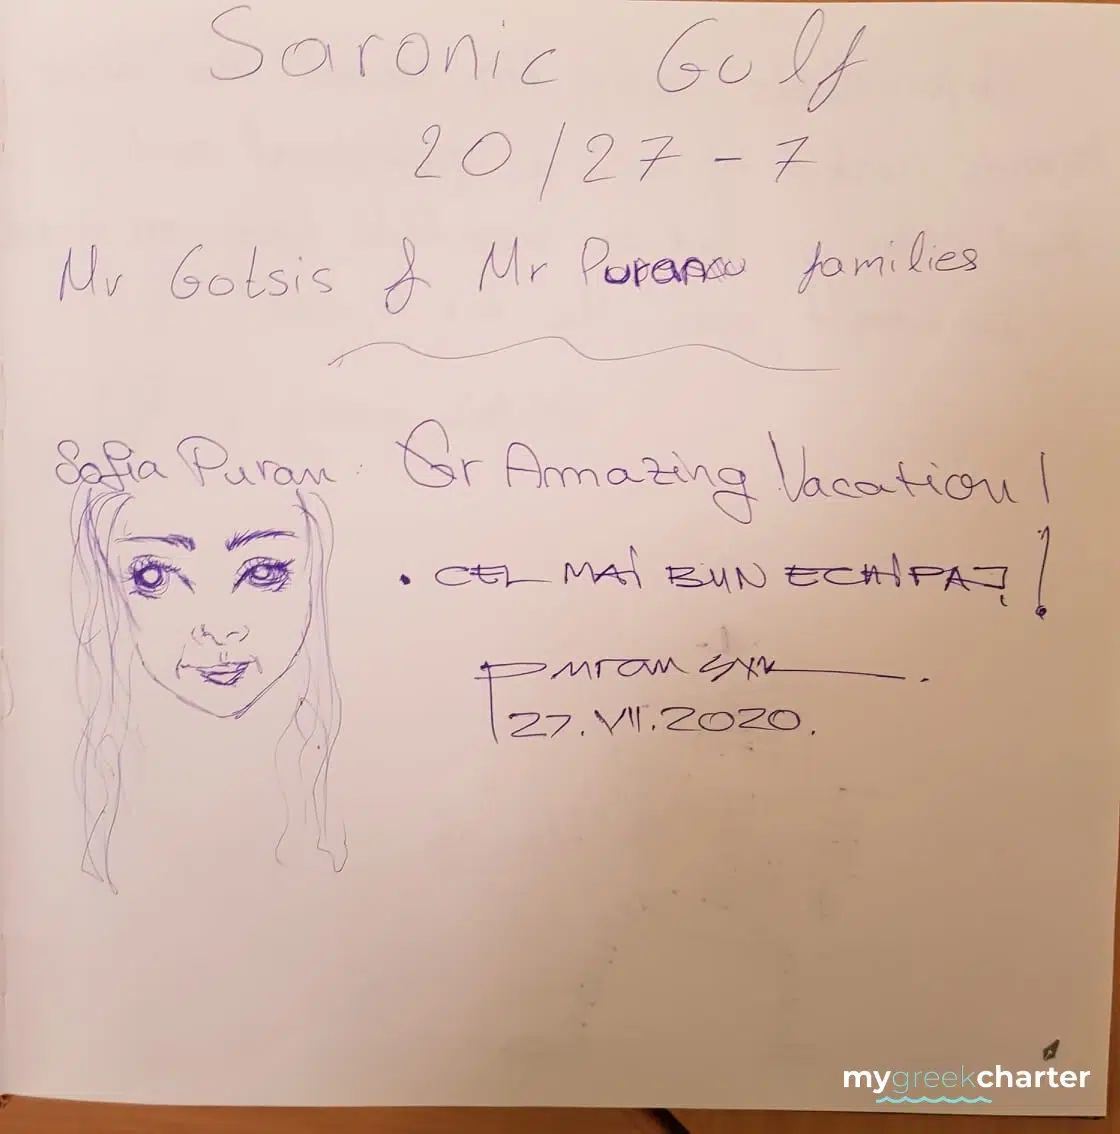 Saronic Gulf
20/27-7
Mr Gotsis & Mr Puran families
Sofia Puran: Gr Amazing Vacation!
• CEL MAI BUN ECHIPAJ!
Puran
27.VII.2020.
mygreekcharter